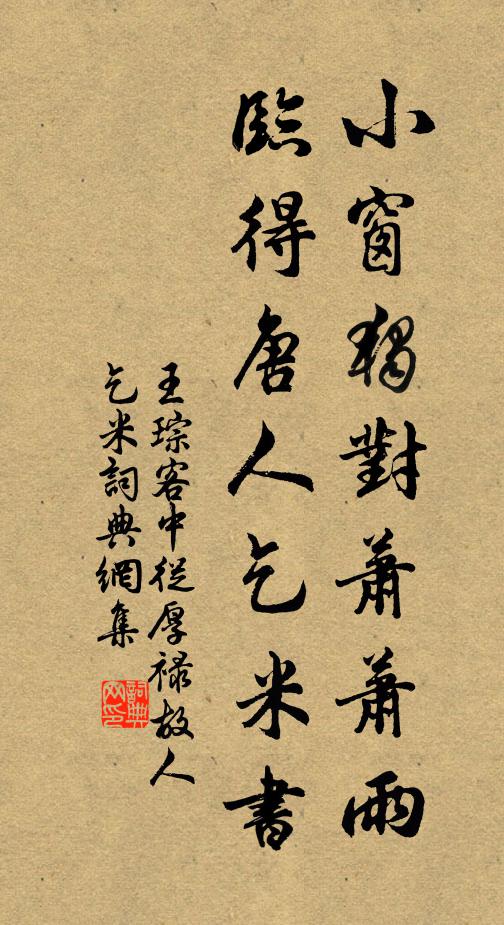 小窗獨對蕭蕭雨
臨得唐人乞米書
王琮客中從厚祿故人
乞米詞典網集
詞典
网印